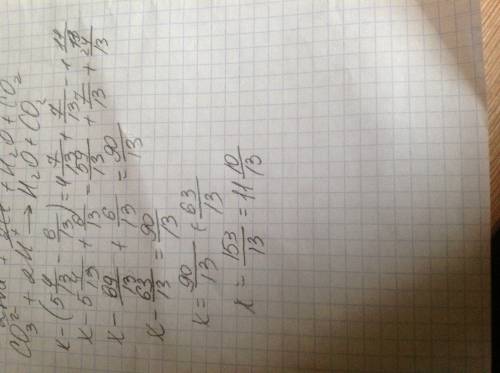 + H₂O + CO₂
CO₃²⁻ + 2H⁺ → H₂O + CO₂
x - (5 4/13 - 6/13) = 4 7/13 + 7/13 +
x - 5 4/13 + 6/13 = 59/13 + 7/13 + 24/13
x - 69/13 + 6/13 = 90/13
x - 63/13 = 90/13
x = 90/13 + 63/13
x = 153/13 = 11 10/13